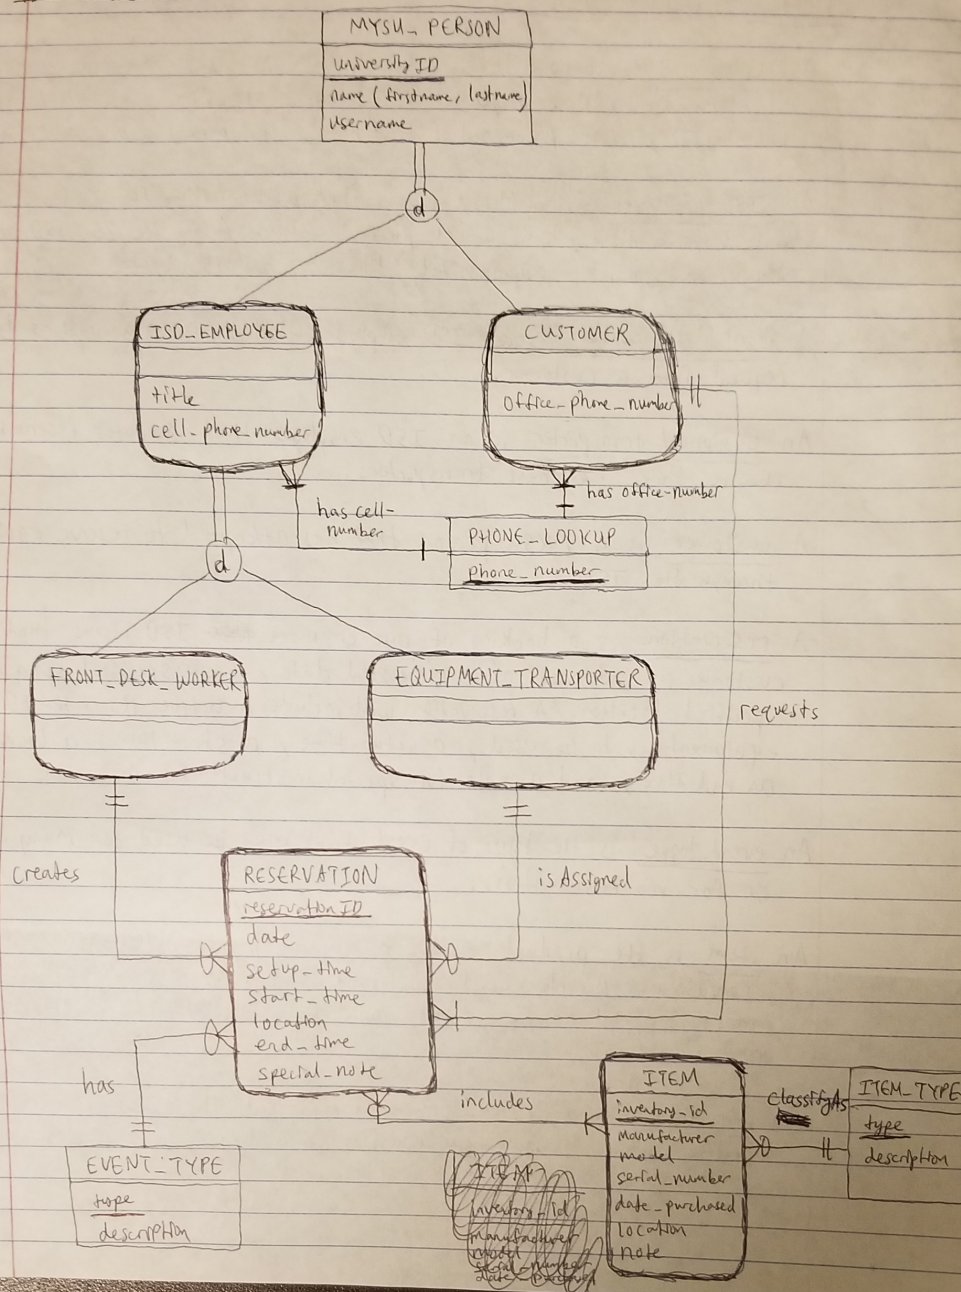 MYSU_PERSON
universityID
name (firstname, lastname)
username
d
ISD_EMPLOYEE
title
cell_phone_number
CUSTOMER
office_phone_number
has cell-
number
has office-number
PHONE_LOOKUP
phone_number
d
FRONT_DESK_WORKER
EQUIPMENT_TRANSPORTER
requests
creates
is Assigned
RESERVATION
reservationID
date
setup_time
start_time
location
end_time
special_note
has
includes
EVENT_TYPE
type
description
ITEM
inventory_id
manufacturer
model
serial_number
date_purchased
location
note
classifyAs
ITEM_TYPE
type
description
ITEM
inventory_id
manufacturer
model
serial_number